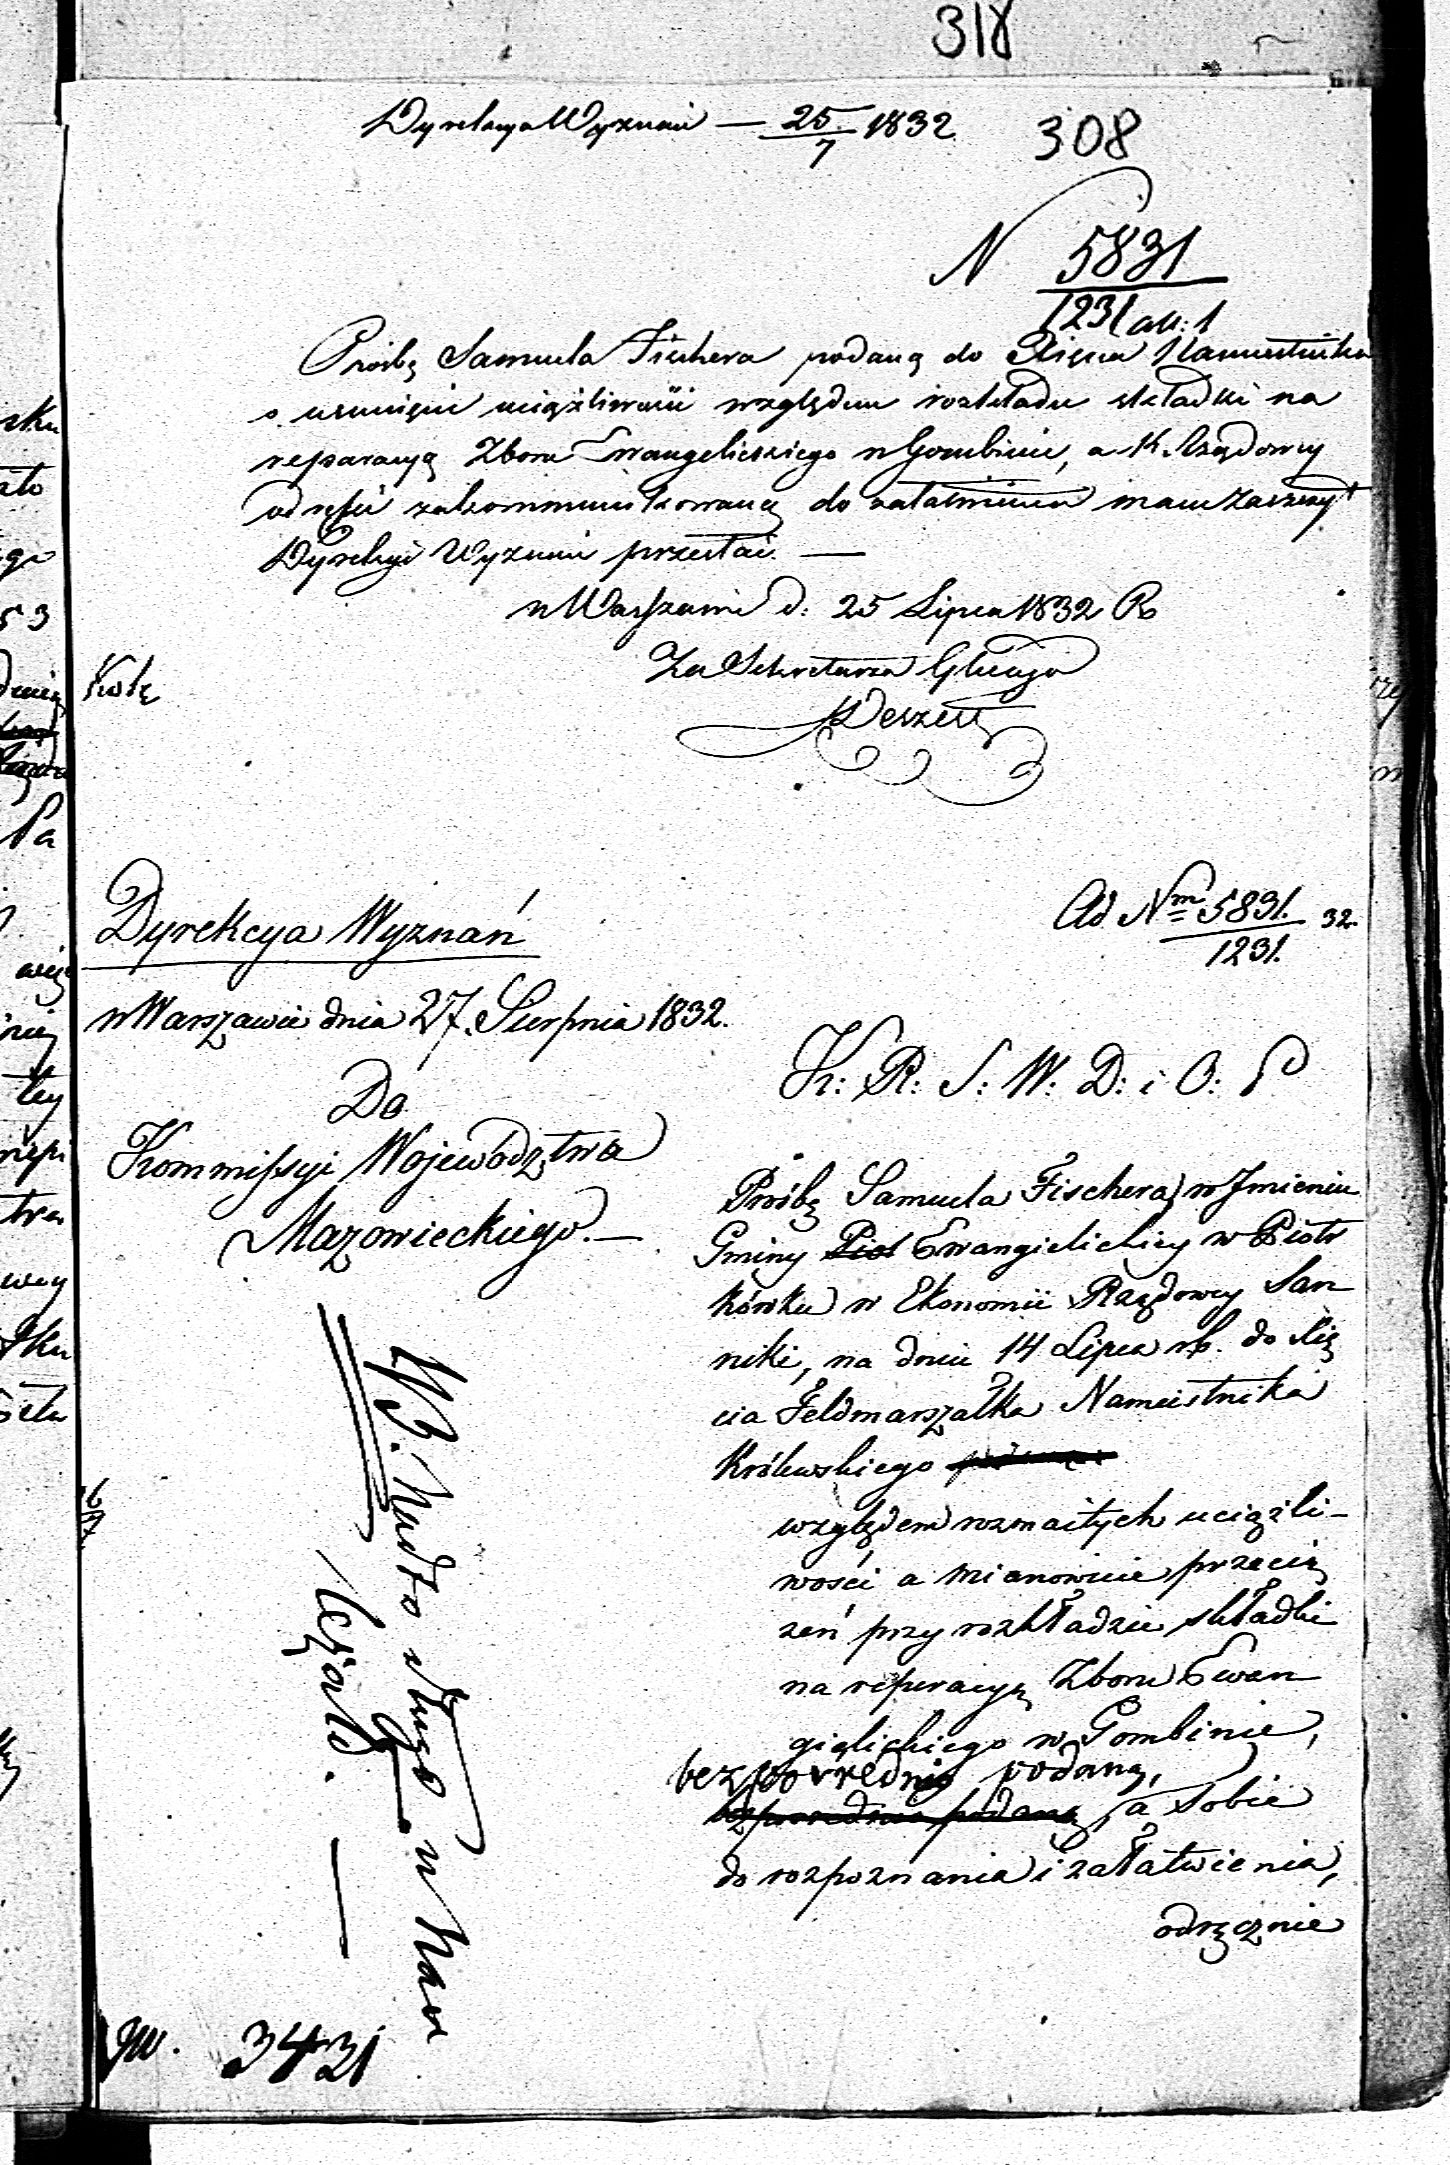 318
Dyrekcya Wyznań — 25/7 1832
308
N 5831
1231 all: 1
Prośbę Samuela Fischera podaną do Xięcia Namiestnika
o usunięcie uciążliwości względem rozkładu składki na
reparacyą Zboru Ewangelickiego w Gombinie, a K. Rządowey
odręcznie zakommunikowaną do załatwienia mam zaszczyt
Dyrekcyi Wyznań przesłać. —
w Warszawie d: 25 Lipca 1832 R
Za Sekretarza Głłnego
Kolę
Dyrekcya Wyznań
Ad Nm 5831. 32.
1231.
w Warszawie dnia 27. Sierpnia 1832.
Do
Kommissyi Województwa
Mazowieckiego. —
K: R: S: W: D: i O: P
Prośbę Samuela Fischera, w Imieniu
Gminy Piot Ewangielickiey w Piotr
kówku w Ekonomii Rządowey San
niki, na dniu 14 Lipca rb. do Xię
cia Feldmarszałka Namiestnika
Królewskiego
względem rozmaitych uciążli-
wości a mianowicie przecią
żeń przy rozkładzie składki
na reperacyą Zboru Ewan
gielickiego w Gombinie,
bezpośrednio podaną,
bezpośrednio podaną, a sobie
do rozpoznania i załatwienia,
odręcznie
NB. Nadto długo u Pana
leżało. —
3431